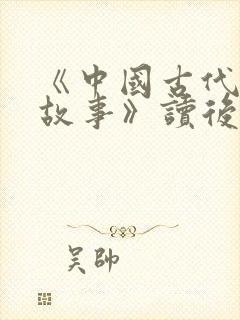 《中國古代
故事》讀後
吴帥